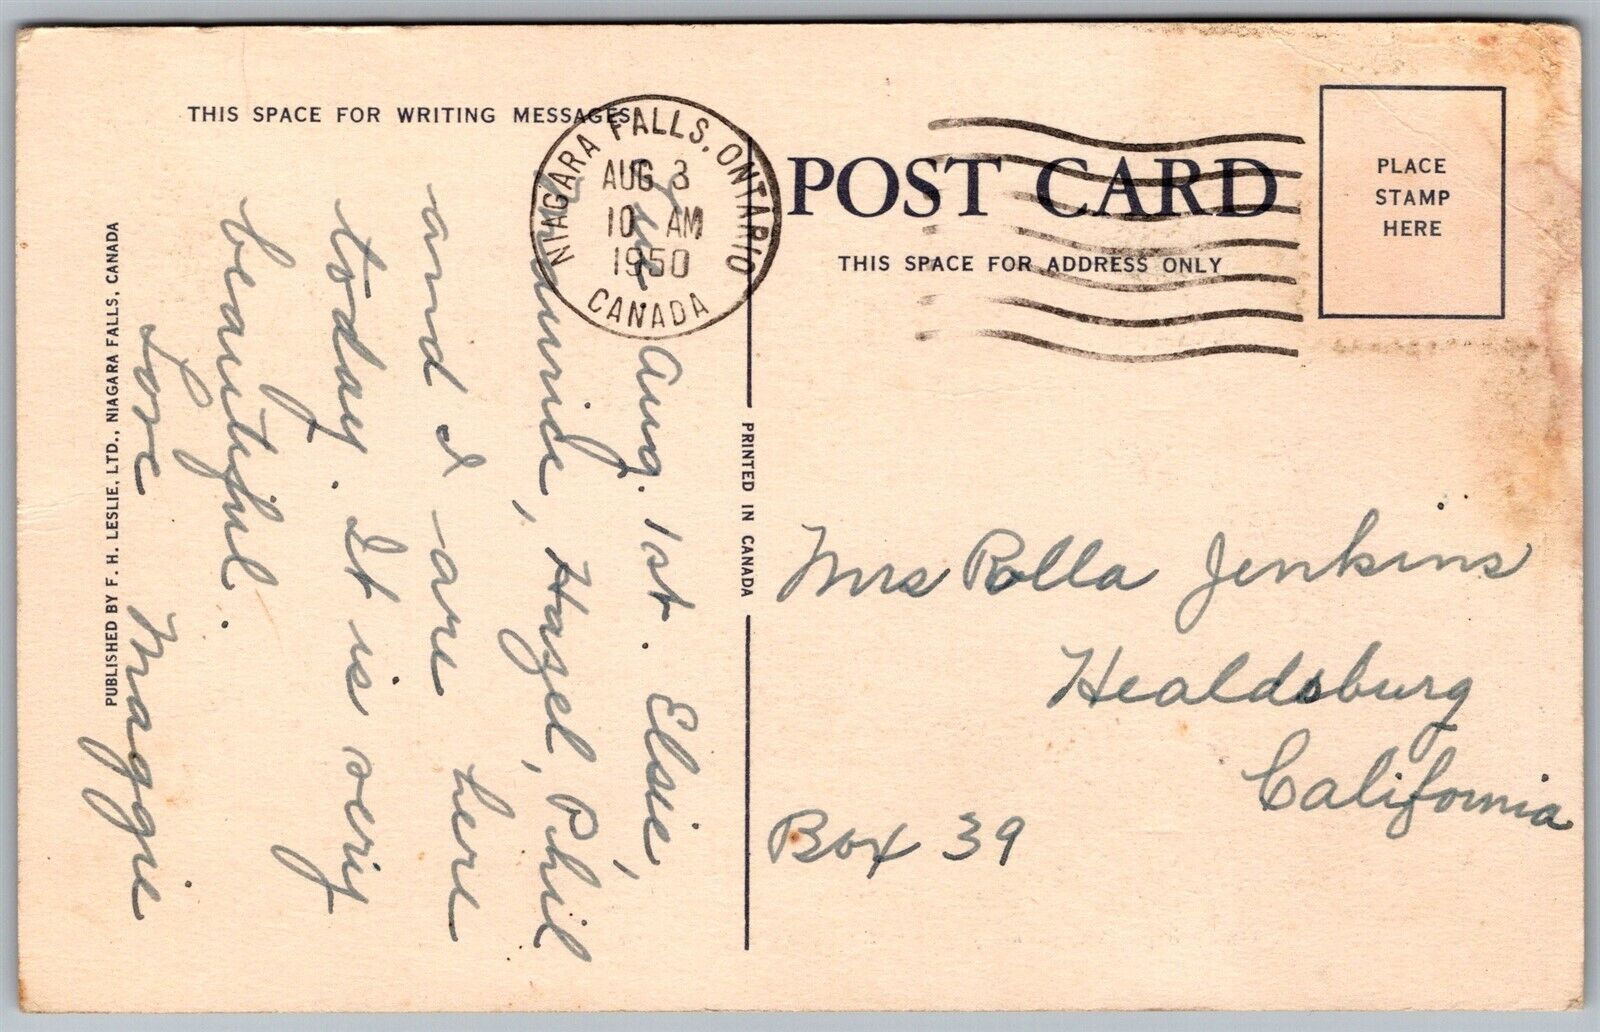 THIS SPACE FOR WRITING MESSAGES
NIAGARA FALLS, ONTARIO
AUG 3
10 AM
1950
CANADA
POST CARD
THIS SPACE FOR ADDRESS ONLY
PLACE
STAMP
HERE
Tues Aug. 1st. Elsie,
Maurice, Hazel, Phil
and I are here
today. It is very
beautiful.
Love Maggie
PUBLISHED BY F. H. LESLIE, LTD., NIAGARA FALLS, CANADA
PRINTED IN CANADA
Mrs Rolla Jenkins
Healdsburg
California
Box 39